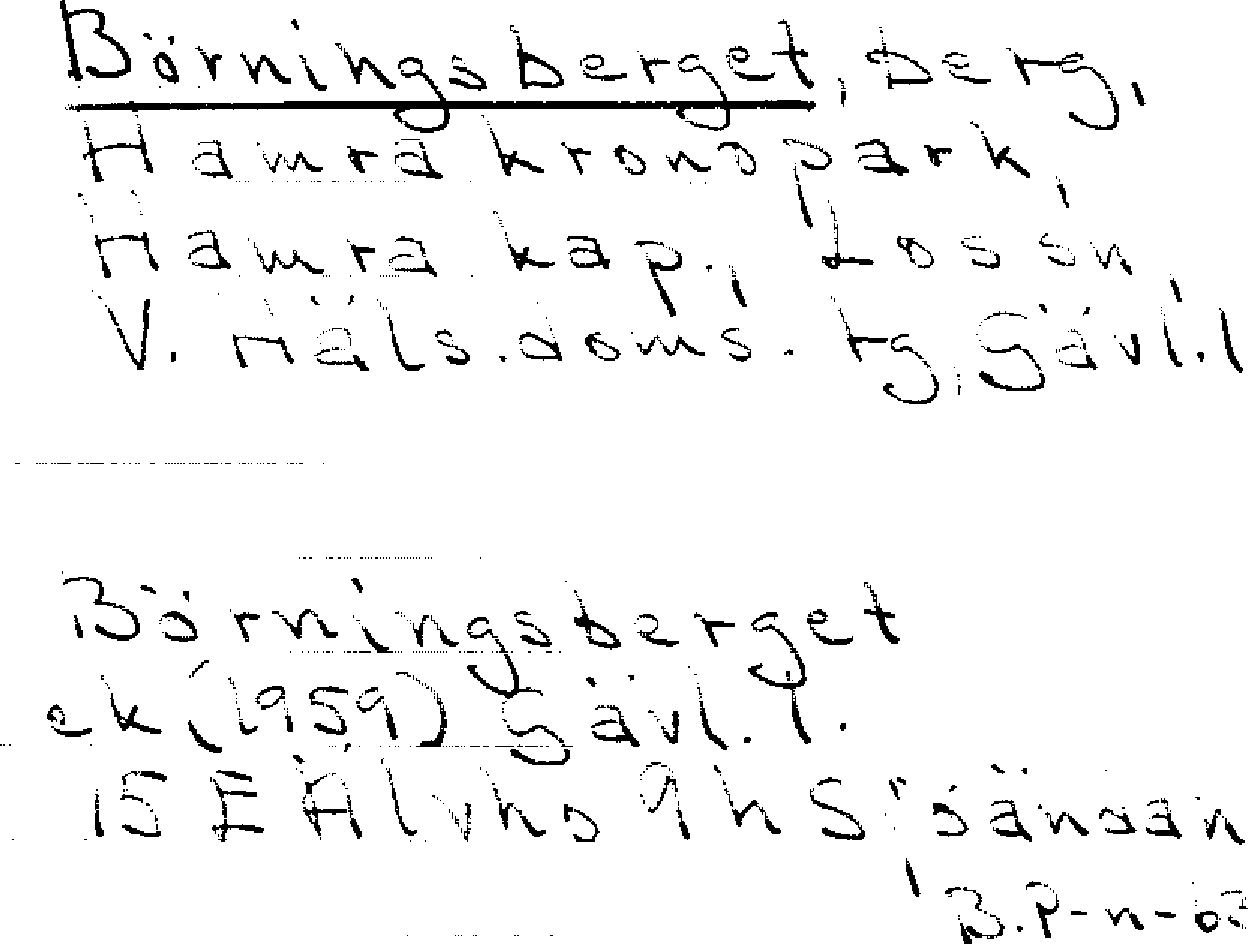 Börningsberget, berg,
Hamra kronopark,
Hamra kap., Los sn,
V. Häls. doms. tg, Gävl. l
Börningsberget
ek (1959) Gävl. l.
15 E Älvho 9 h S
B. P-n-63